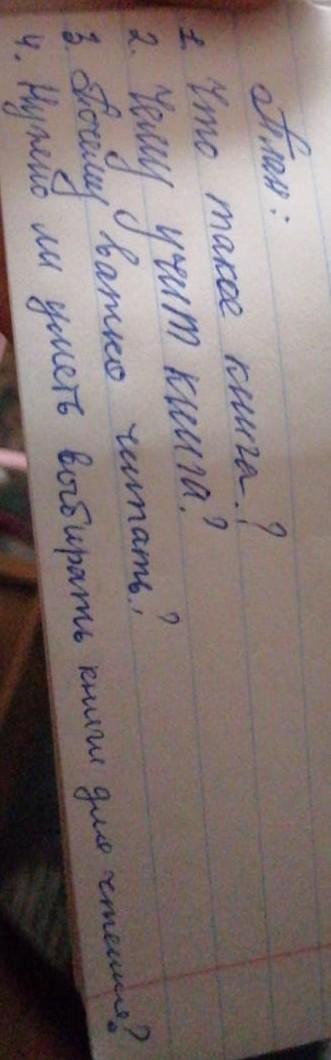 План:
1. Что такое книга?
2. Чему учит книга?
3. Почему важно читать?
4. Нужно ли уметь выбирать книги для чтения?